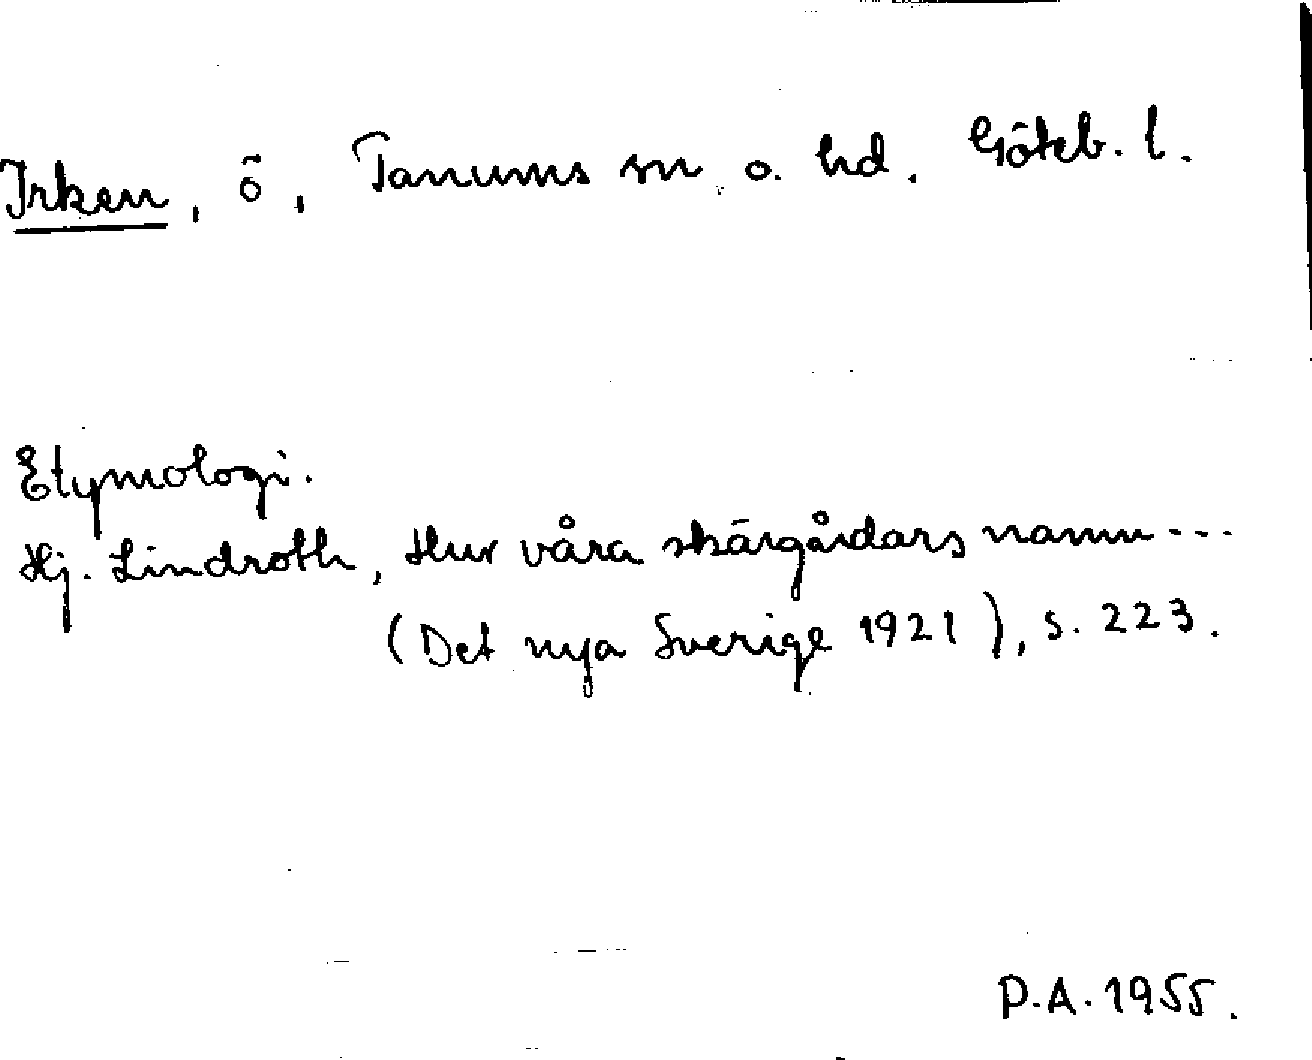 Irken, ö, Tanums sn o. hd. Göteb. l.
Etymologi.
Hj. Lindroth, Hur våra skärgårdars namn ---
(Det nya Sverige 1921), s. 223.
P.A. 1955.